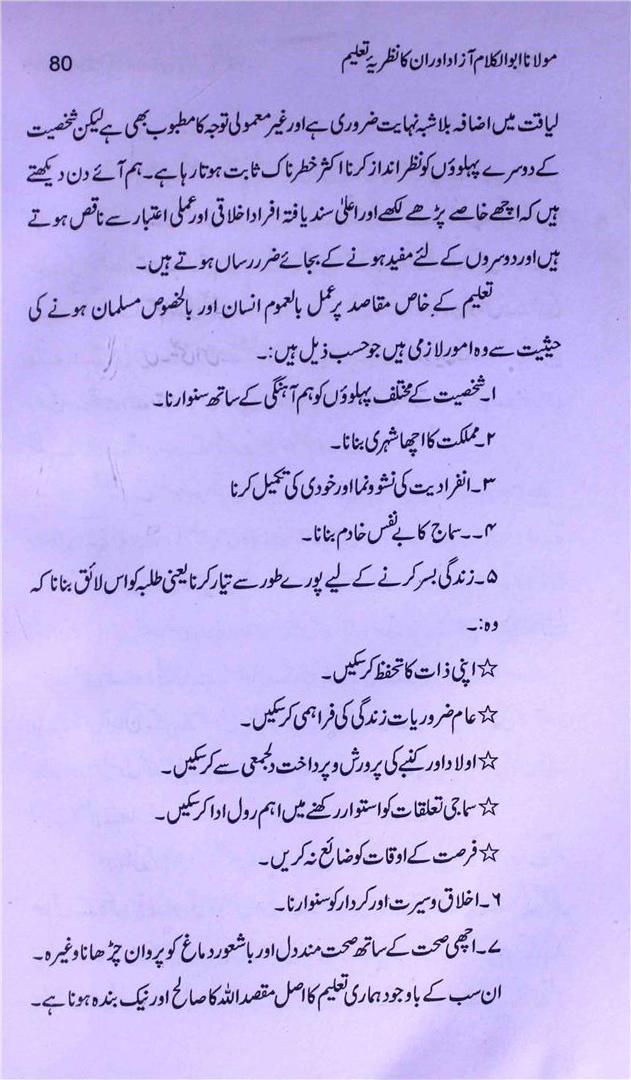 مولانا ابوالکلام آزاد اور ان کا نظریۂ تعلیم 80
لیاقت میں اضافہ بلا شبہ نہایت ضروری ہے اور غیر معمولی توجہ کا مطبوب بھی ہے لیکن شخصیت
کے دوسرے پہلوؤں کو نظر انداز کرنا اکثر خطرناک ثابت ہوتا رہا ہے۔ ہم آئے دن دیکھتے
ہیں کہ اچھے خاصے پڑھے لکھے اور اعلیٰ سند یافتہ افراد اخلاقی اور عملی اعتبار سے ناقص ہوتے
ہیں اور دوسروں کے لئے مفید ہونے کے بجائے ضرر رساں ہوتے ہیں۔
تعلیم کے خاص مقاصد پر عمل بالعموم انسان اور بالخصوص مسلمان ہونے کی
حیثیت سے وہ امور لازمی ہیں جو حسب ذیل ہیں:۔
۱۔ شخصیت کے مختلف پہلوؤں کو ہم آہنگی کے ساتھ سنوارنا۔
۲۔ مملکت کا اچھا شہری بنانا۔
۳۔ انفرادیت کی نشو و نما اور خودی کی تکمیل کرنا
۴۔۔ سماج کا بے نفس خادم بنانا۔
۵۔ زندگی بسر کرنے کے لیے پورے طور سے تیار کرنا یعنی طلبہ کو اس لائق بنانا کہ
وہ:۔
☆ اپنی ذات کا تحفظ کر سکیں۔
☆ عام ضروریات زندگی کی فراہمی کر سکیں۔
☆ اولاد اور کنبے کی پرورش و پرداخت دلجمعی سے کر سکیں۔
☆ سماجی تعلقات کو استوار رکھنے میں اہم رول ادا کر سکیں۔
☆ فرصت کے اوقات کو ضائع نہ کریں۔
۶۔ اخلاق و سیرت اور کردار کو سنوارنا۔
۷۔ اچھی صحت کے ساتھ صحت مند دل اور باشعور دماغ کو پروان چڑھانا وغیرہ۔
ان سب کے باوجود ہماری تعلیم کا اصل مقصد اللہ کا صالح اور نیک بندہ ہونا ہے۔